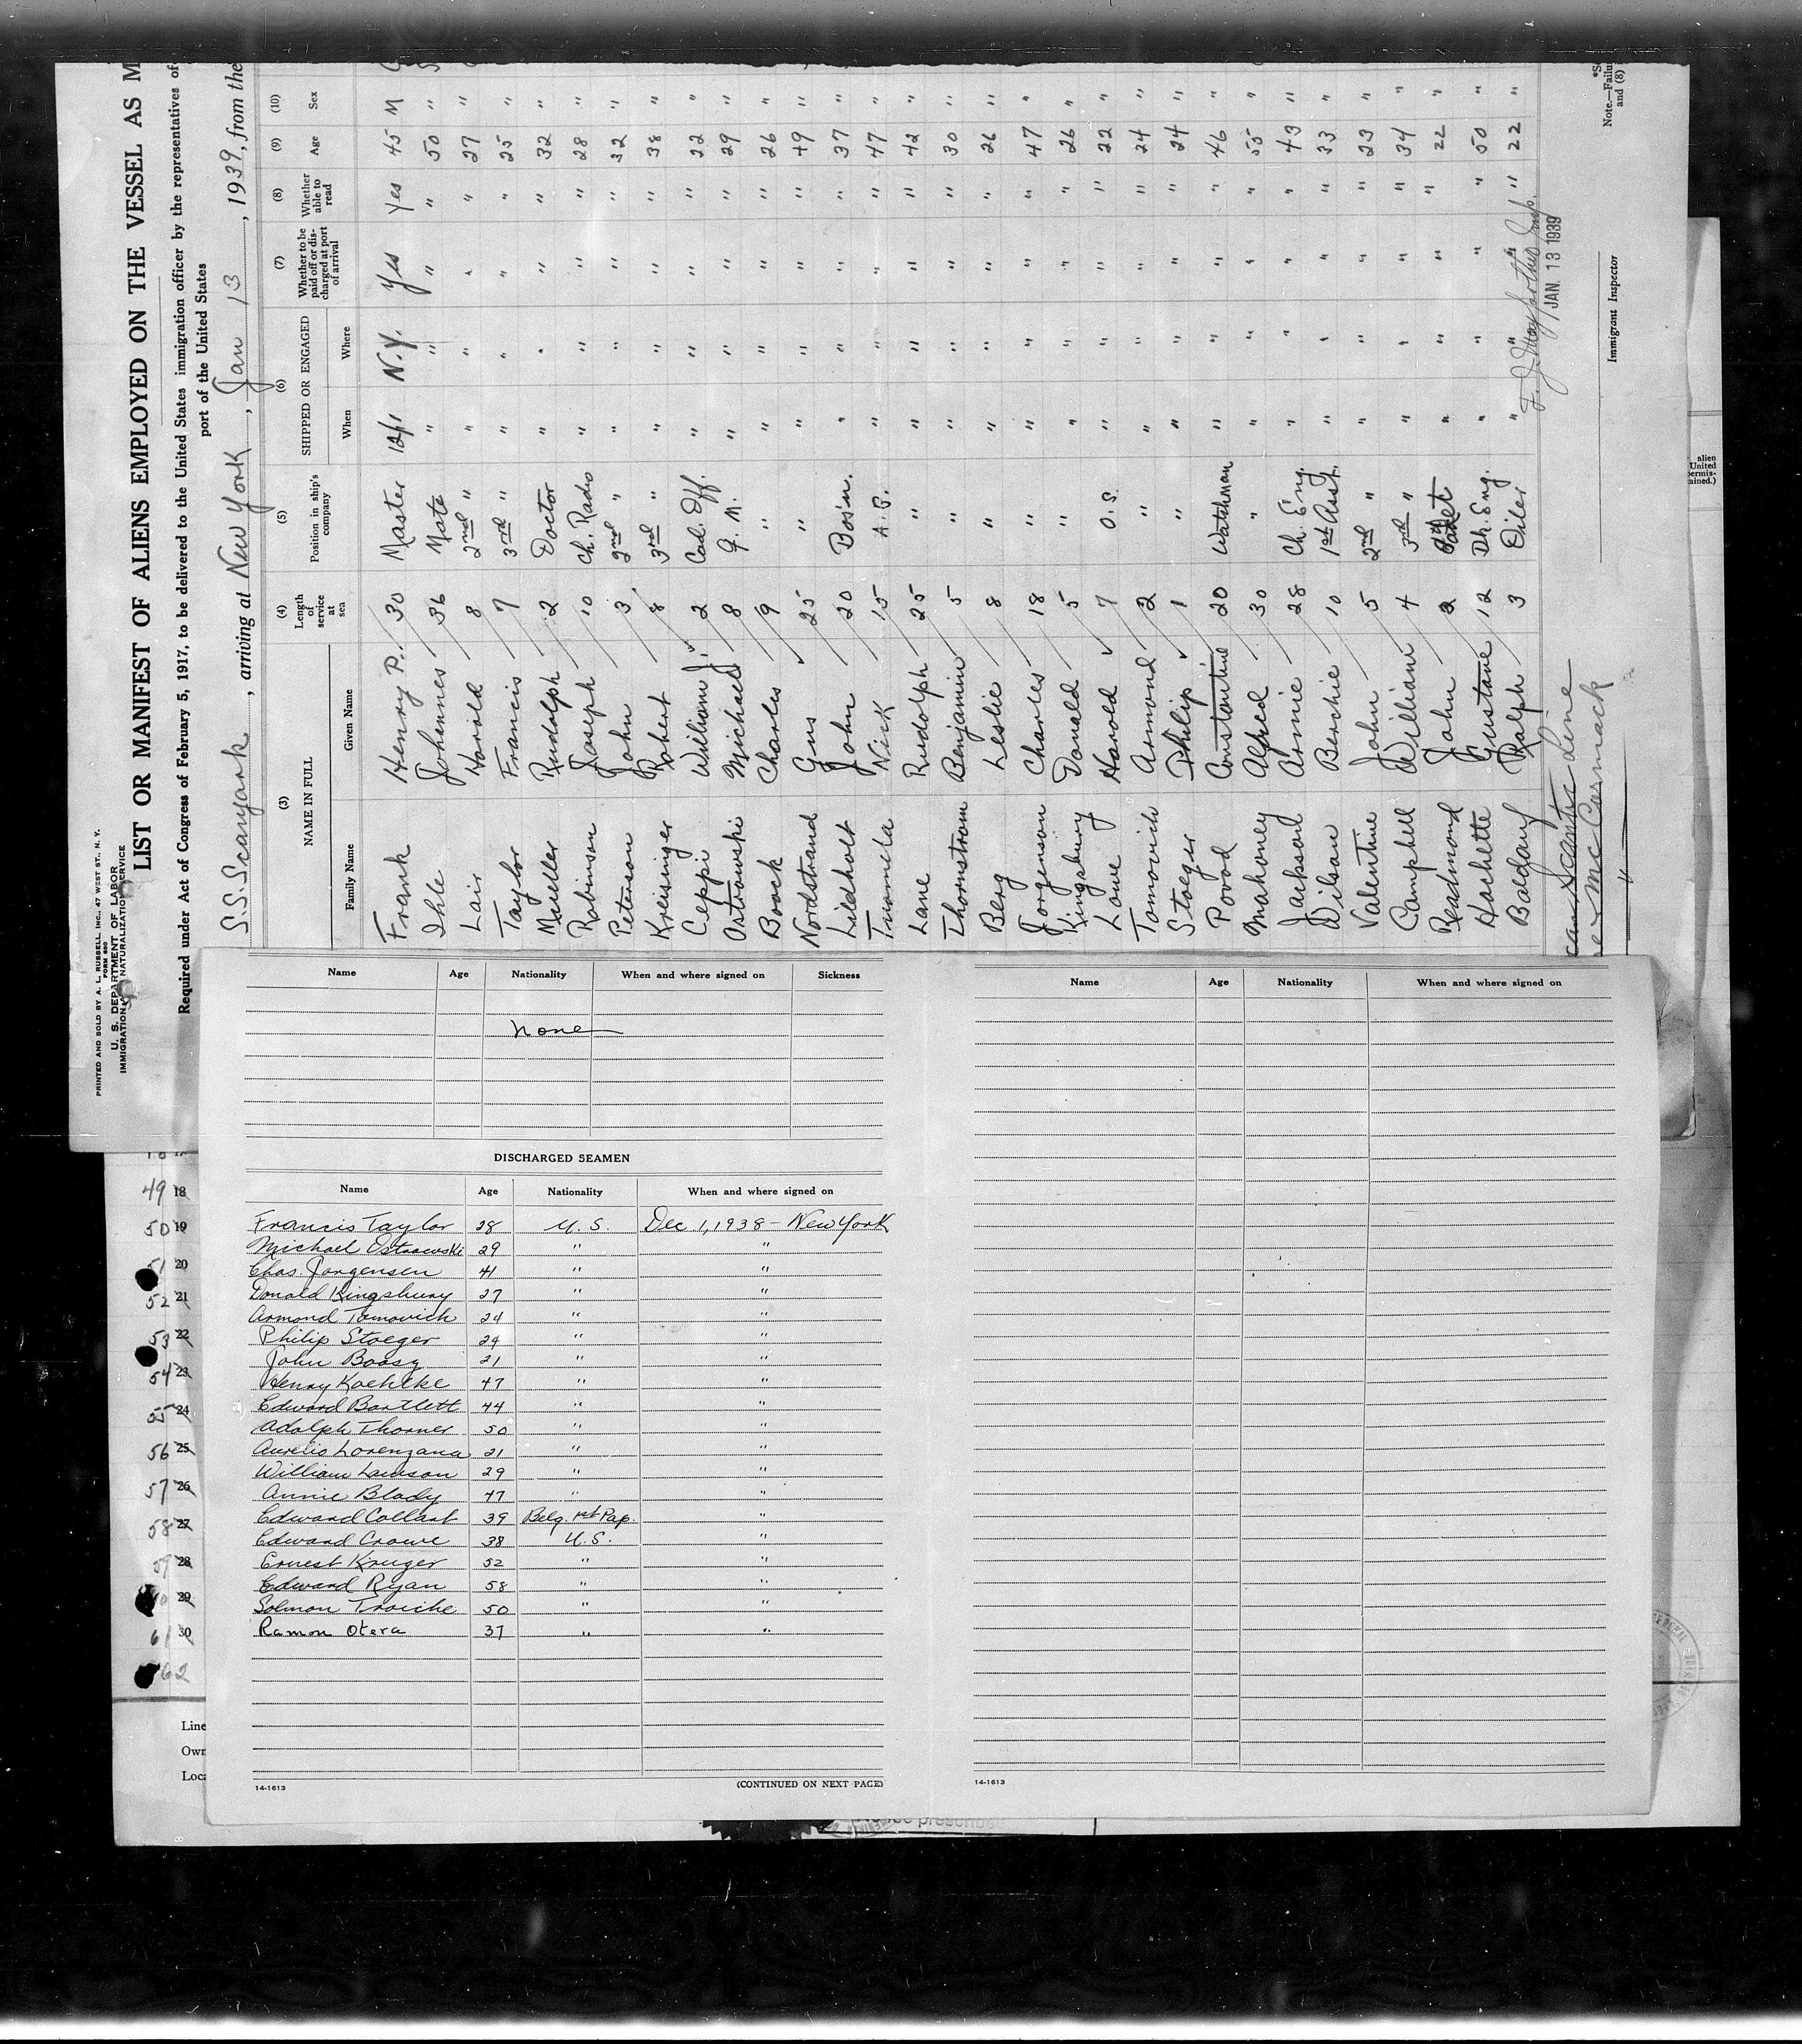 PRINTED AND SOLD BY A. L. RUSSELL, INC., 47 WEST ST., N. Y.
FORM 680
U. S. DEPARTMENT OF LABOR
IMMIGRATION NATURALIZATION SERVICE
LIST OR MANIFEST OF ALIENS EMPLOYED ON THE VESSEL AS M
Required under Act of Congress of February 5, 1917, to be delivered to the United States immigration officer by the representatives of
port of the United States
S.S. Scanyork, arriving at New York, Jan 13, 1939, from the
(3) (4) (5) (6) (7) (8) (9) (10)
NAME IN FULL Length of service at sea Position in ship's company SHIPPED OR ENGAGED Whether to be paid off or discharged at port of arrival Whether able to read Age Sex
Family Name Given Name When Where
Frank Henry P. 30 Master 12/1 N.Y. Yes Yes 45 M
Ihle Johannes 36 Mate " " " " 50 "
Lair Harold 8 2nd " " " " " 27 "
Taylor Francis 7 3rd " " " " " 25 "
Mueller Rudolph 2 Doctor " " " " 32 "
Robinson Joseph 10 Ch. Radio " " " " 28 "
Peterson John 3 2nd " " " " " 32 "
Kreisinger Robert 8 3rd " " " " " 38 "
Ceppi William J. 2 Cad. Off. " " " " 22 "
Ostrowski Michael 8 Q. M. " " " " 29 "
Boock Charles 9 " " " " " 26 "
Nordstrand Gus 25 " " " " " 49 "
Lildholt John 20 Bos'n. " " " " 37 "
Tuomela Nick 15 A. B. " " " " 47 "
Lane Rudolph 25 " " " " " 42 "
Thornstrom Benjamin 5 " " " " " 30 "
Berg Leslie 8 " " " " " 26 "
Jorgenson Charles 18 " " " " " 47 "
Kingsbury Donald 5 " " " " " 26 "
Lowe Harold 7 O.S. " " " " 22 "
Tomovich Armond 2 " " " " " 24 "
Stoeger Philip 1 " " " " " 24 "
Povod Constantine 20 Watchman " " " " 46 "
Mahoney Alfred 30 " " " " " 55 "
Jackson Arnie 28 Ch. Eng. " " " " 43 "
Wilson Berchie 10 1st Asst. " " " " 33 "
Valentine John 5 2nd " " " " " 23 "
Campbell William 4 3rd " " " " " 34 "
Readmond John 2 Cadet " " " " 22 "
Hachette Gustave 12 Dk. Eng. " " " " 50 "
Baldauf Ralph 3 Oiler " " " " 22 "
JAN. 13 1939
Immigrant Inspector
Scantic Line
Mc Cormack
Note.—Failu
and (8) i
alien
United
permis-
ained.)
Name Age Nationality When and where signed on Sickness
None
DISCHARGED SEAMEN
Name Age Nationality When and where signed on
Francis Taylor 28 U.S. Dec 1, 1938 - New York
Michael Ostrowski 29 " "
Chas. Jorgensen 41 " "
Donald Kingsbury 27 " "
Armond Tomovich 24 " "
Philip Stoeger 24 " "
John Boasy 21 " "
Henry Koehlke 47 " "
Edward Bartlett 44 " "
Adolph Thorner 50 " "
Aurelio Lorenzana 21 " "
William Lawson 29 " "
Annie Blady 47 " "
Edward Collart 39 Belg. 1st Pap. "
Edward Crowe 38 U.S. "
Ernest Kruger 52 " "
Edward Ryan 58 " "
Solmon Troiche 50 " "
Ramon Otera 37 " "
14-1613 (CONTINUED ON NEXT PAGE)
Name Age Nationality When and where signed on
14-1613
49 18
50 19
51 20
52 21
53 22
54 23
55 24
56 25
57 26
58 27
59 28
29
61 30
62
Line
Own
Loca